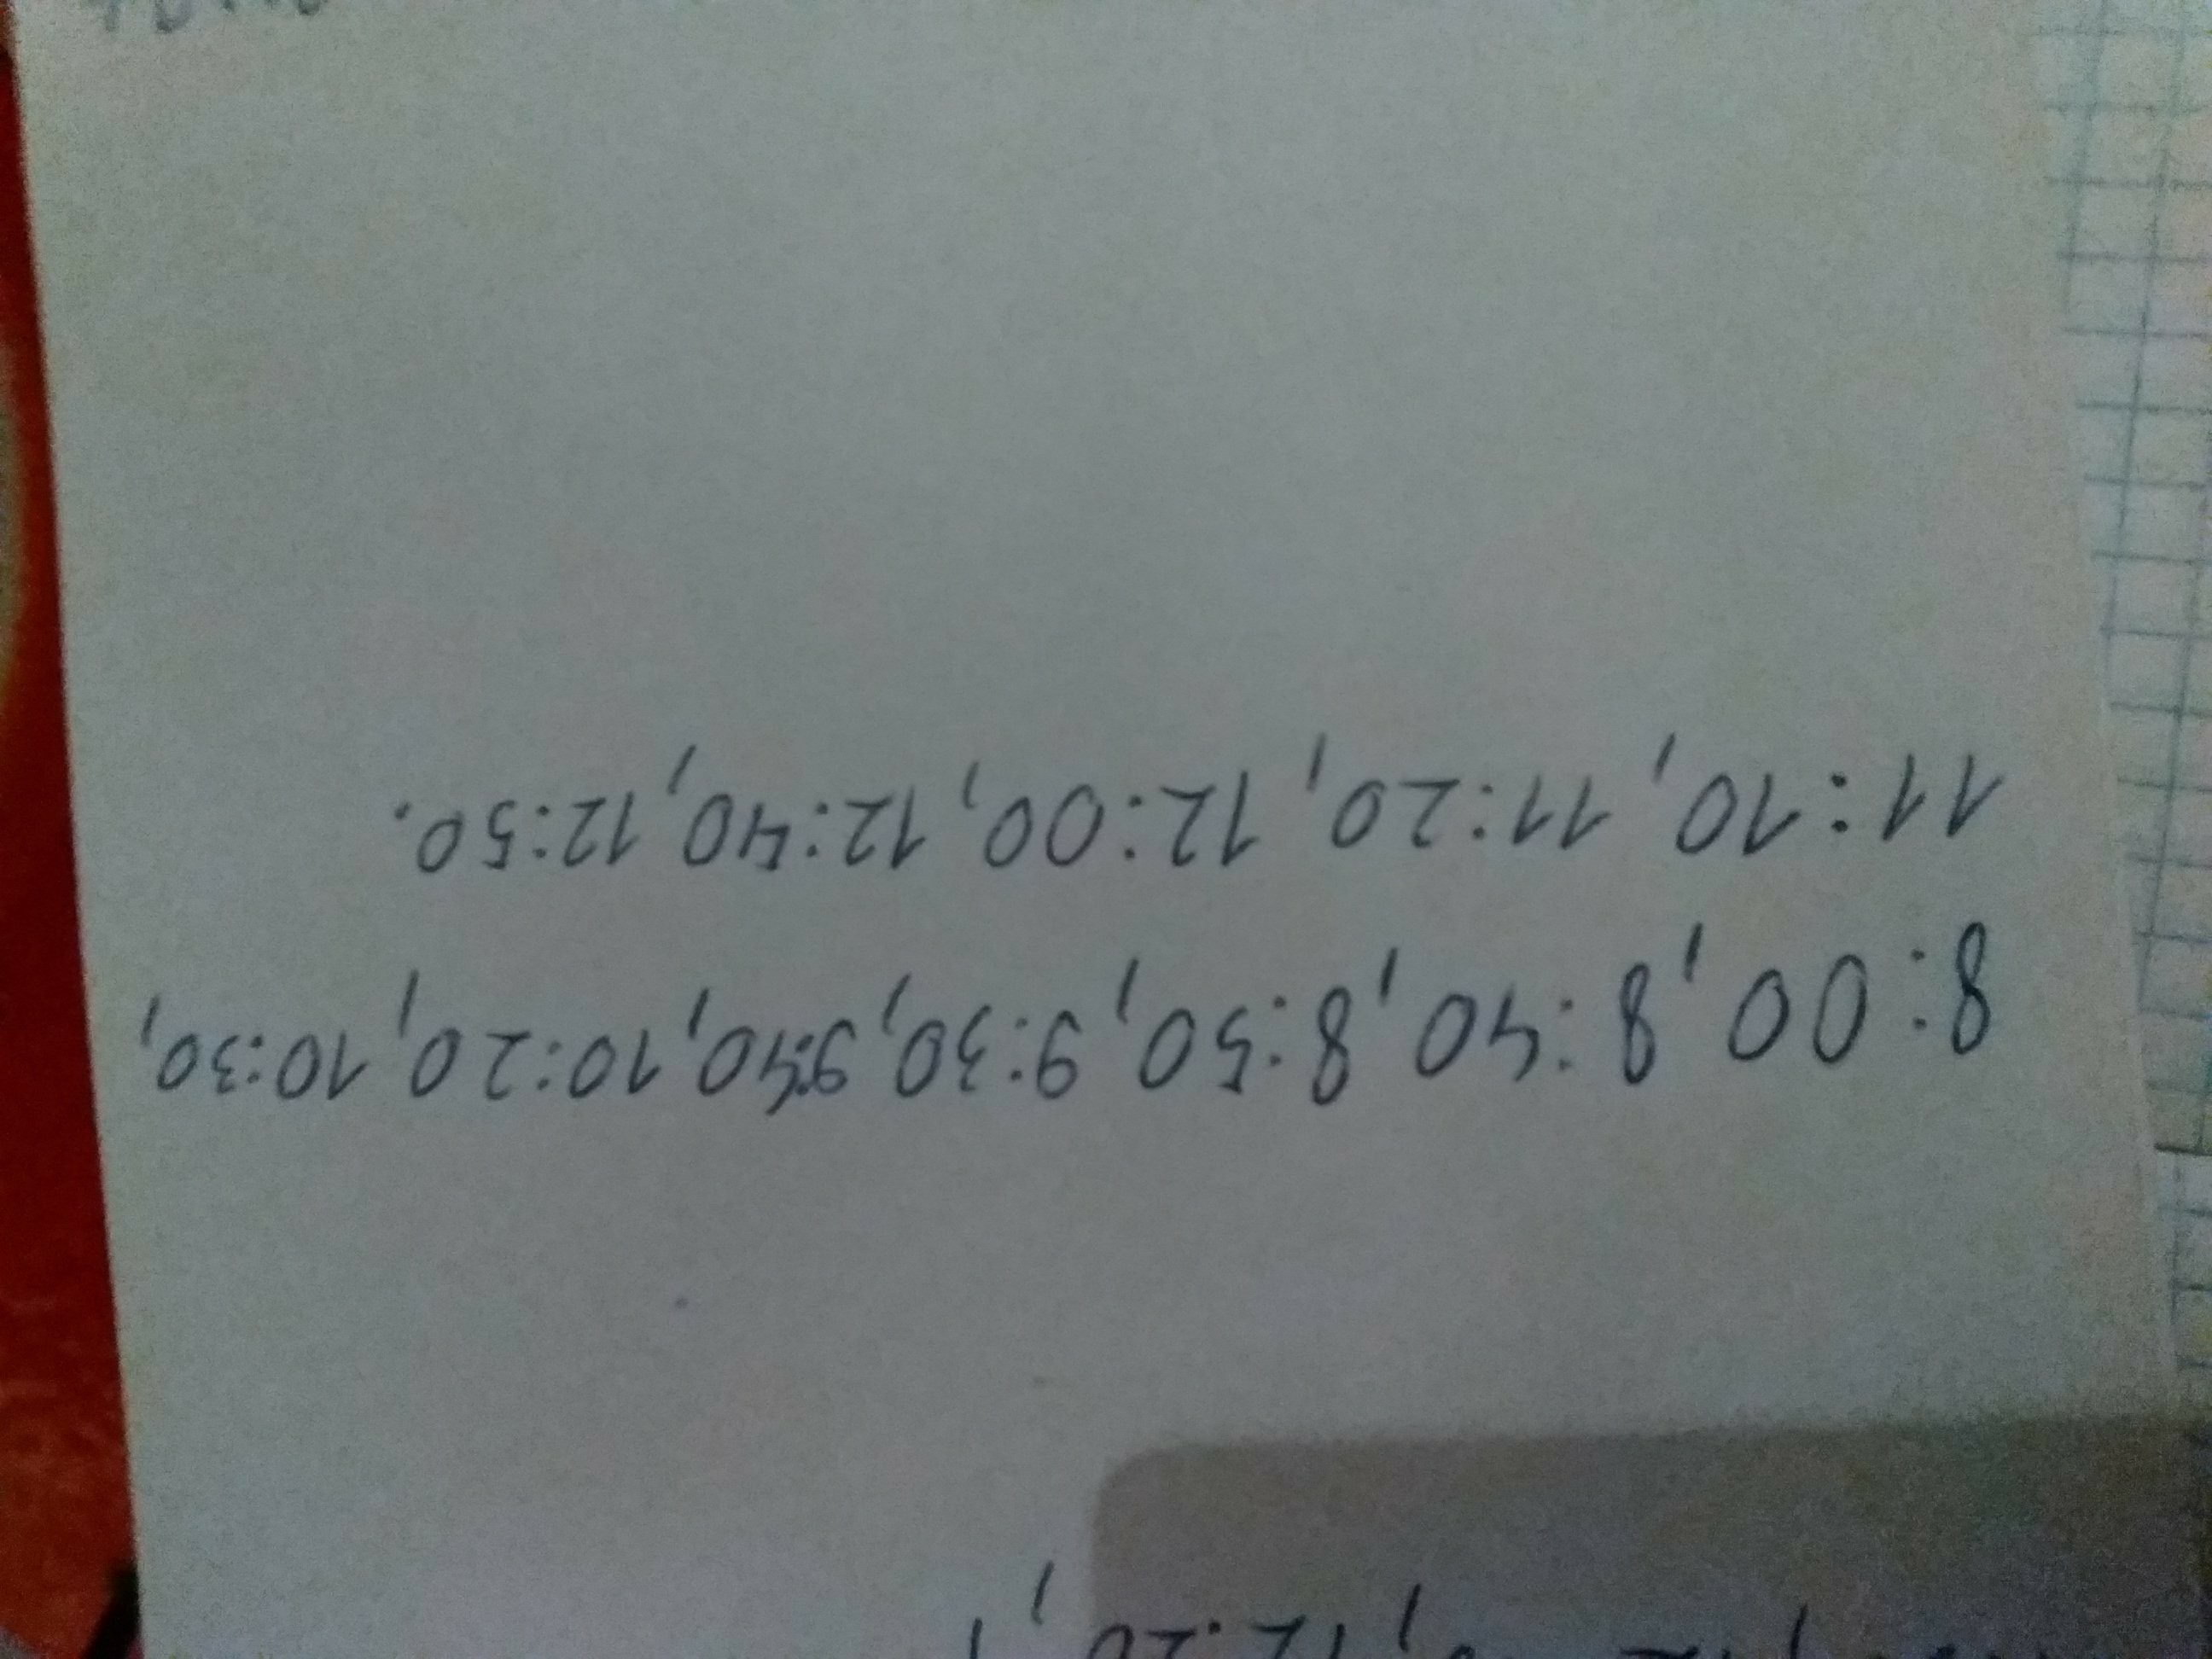 8:00, 8:40, 8:50, 9:30, 9:40, 10:20, 10:30,
11:10, 11:20, 12:00, 12:40, 12:50.